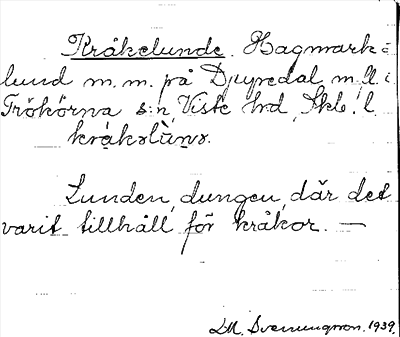 Kråkelunde. Hagmark =
lund m.m. på Djupedal m.fl. i
Trökörna s:n, Viste hrd, Skb. l.
Lunden, dungen, där det
varit tillhåll för kråkor. —
D.M. Svenungsson. 1939.